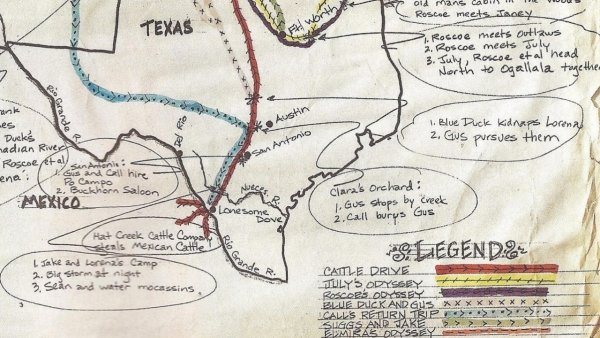 old mans cabin in the woods
Roscoe meets Janey
TEXAS
Ft Worth
1. Roscoe meets Outlaws
2. Roscoe meets July
3. July, Roscoe et al head
North to Ogallala together
Rio Grande R.
Del Rio
Austin
San Antonio
1. Blue Duck kidnaps Lorena
2. Gus pursues them
Duck's
nadian River
Roscoe et al
ena
San Antonio:
1. Gus and Call hire
Po Campo
2. Buckhorn Saloon
Nueces R.
Clara's Orchard:
1. Gus stops by Creek
2. Call burys Gus
MEXICO
Lonesome
Dove
Hat Creek Cattle Company
steals Mexican Cattle
Rio Grande R.
1. Jake and Lorena's Camp
2. Big storm at night
3. Sean and water moccasins.
LEGEND
CATTLE DRIVE
JULY'S ODYSSEY
ROSCOE'S ODYSSEY
BLUE DUCK AND GUS
CALL'S RETURN TRIP
SUGGS AND JAKE
ELMIRAS ODYSSEY
3